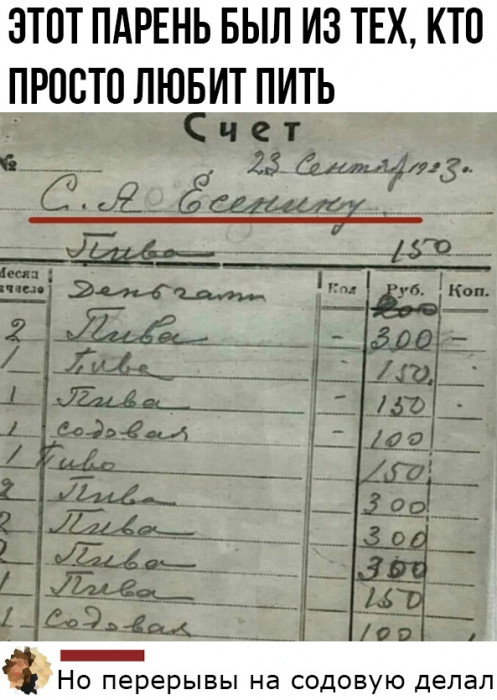 ЭТОТ ПАРЕНЬ БЫЛ ИЗ ТЕХ, КТО
ПРОСТО ЛЮБИТ ПИТЬ
Счет
№ 23 Сентяб. 1923.
С. А Есенину.
Пива 150
Месяц и число Деньгами Кол Руб. Коп.
200
2 Пива - 300 -
1 Пиво 150.
1 Пива - 150 -
1 Содовая - 100
1 Пиво 150
2 Пива 300
2 Пива 300
2 Пива 300
1 Пива 150
1 Содовая 100
Но перерывы на содовую делал